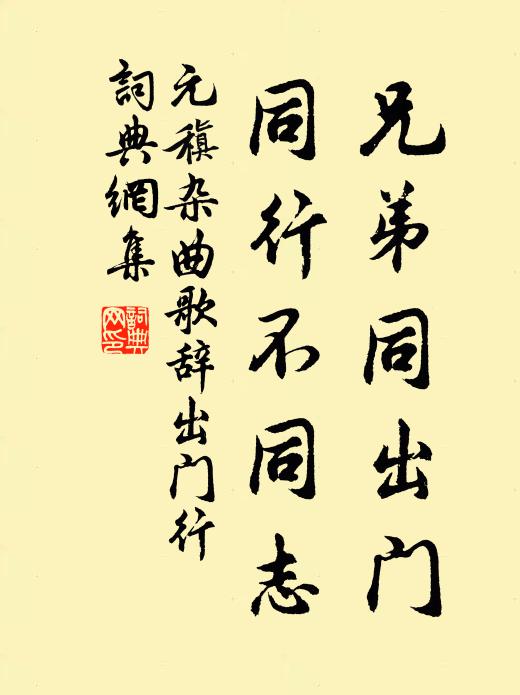 兄弟同出门
同行不同志
元稹杂曲歌辞出门行
詞典網集
詞典网印